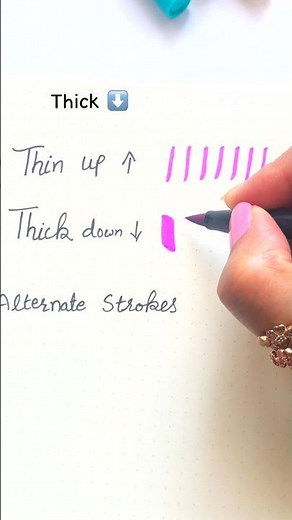 Thick ⬇️
Thin up ↑
Thick down ↓
Alternate Strokes